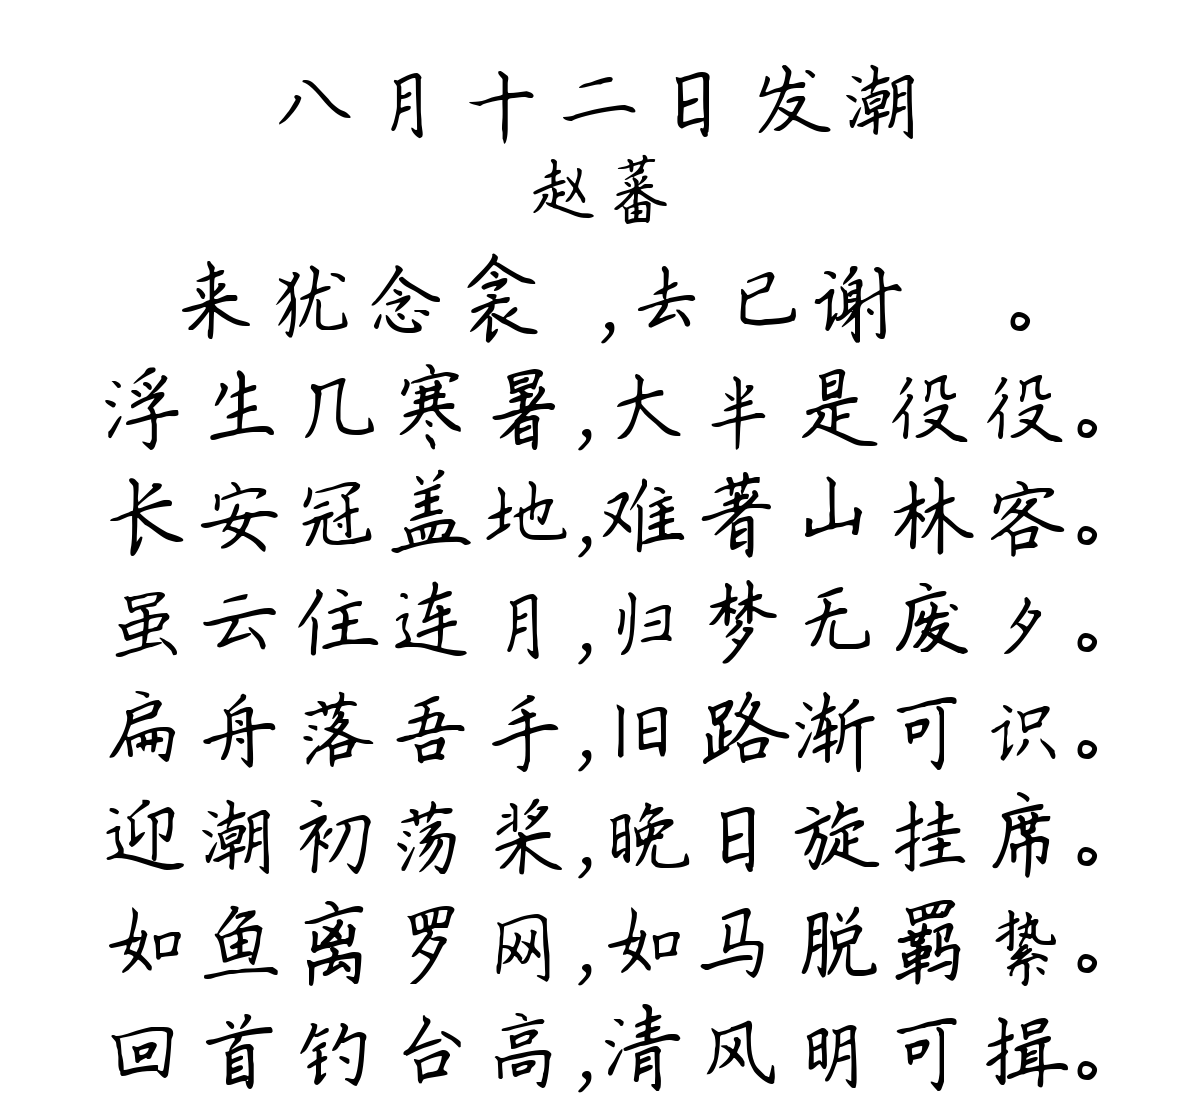 八月十二日发潮
赵蕃
来犹念衾，去已谢。
浮生几寒暑，大半是役役。
长安冠盖地，难著山林客。
虽云住连月，归梦无废夕。
扁舟落吾手，旧路渐可识。
迎潮初荡桨，晚日旋挂席。
如鱼离罗网，如马脱羁絷。
回首钓台高，清风明可揖。